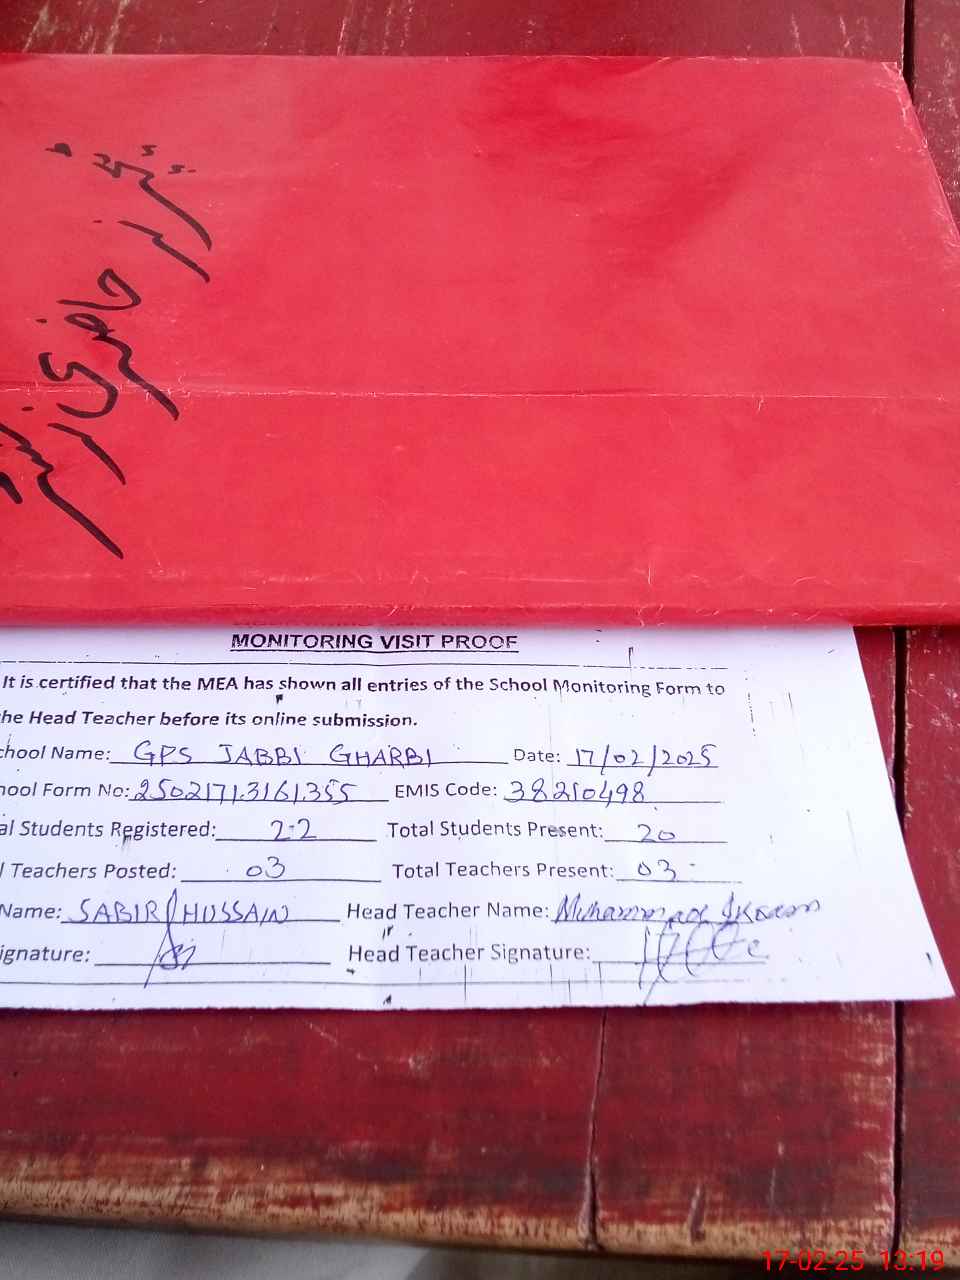 رجسٹر حاضری
MONITORING VISIT PROOF
It is certified that the MEA has shown all entries of the School Monitoring Form to
he Head Teacher before its online submission.
chool Name: GPS JABBI GHARBI Date: 17/02/2025
ool Form No: 25021713161355 EMIS Code: 38210498
al Students Registered: 22 Total Students Present: 20
l Teachers Posted: 03 Total Teachers Present: 03
Name: SABIR HUSSAIN Head Teacher Name: Muhammad Ikram
ignature: Head Teacher Signature:
17-02-25 13:19